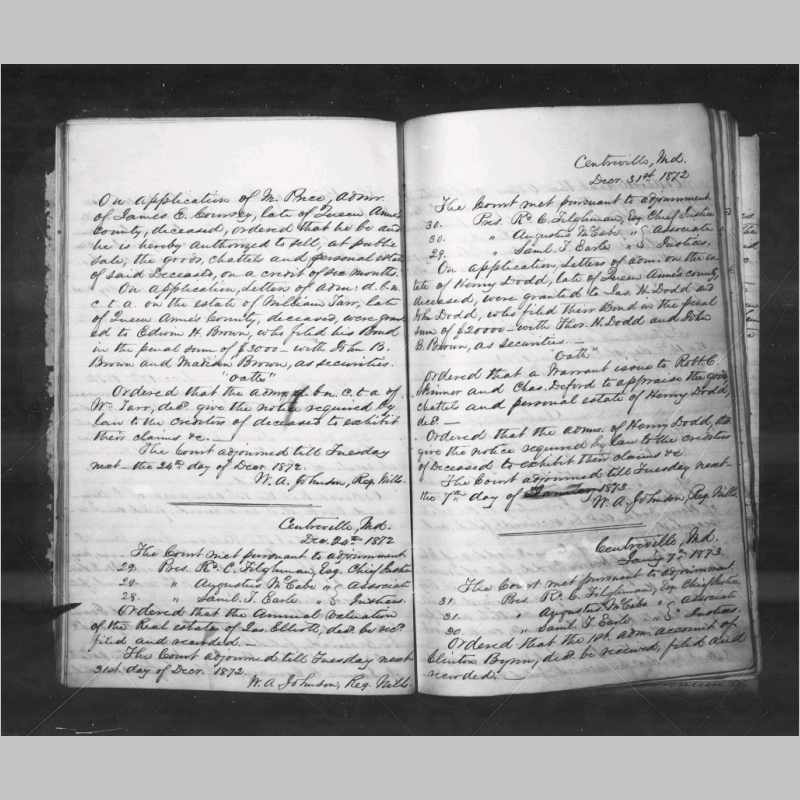 On application of M. Price, admr.
of James E. Coursey, late of Queen Annes
County, deceased, ordered that he be and
he is hereby authorized to sell, at public
sale, the goods, chattels and personal estate
of said Deceased, on a credit of six months.
On application, Letters of adm: d. b. n.
c. t. a. on the estate of William Tarr, late
of Queen Anne's County, deceased, were grant
ed to Edwin H. Brown, who filed his Bond
in the penal sum of $3000 - with John B.
Brown and Marian Brown, as securities.
"oath"
Ordered that the admr. d. b. n. c. t. a of
Wm. Tarr, decd. give the notice required by
law to the creditors of deceased to exhibit
their claims &c. —
The Court adjourned till Tuesday
next - the 24th day of Decr. 1872.
W. A. Johnson, Reg. Wills.
Centreville, Md.
Dec. 24th 1872
The Court met pursuant to adjournment
29. Pres. Rd. C. Tilghman, Esq. Chief Justice
29. " Augustus McCabe " } Associate
28. " Saml. T. Earle " } Justices.
Ordered that the Annual Valuation
of the Real estate of Jas. Elliott, decd. be recd.
filed and recorded. —
The Court adjourned till Tuesday next
31st day of Decr. 1872.
W. A. Johnson, Reg. Wills.
Centreville, Md.
Decr. 31st 1872
The Court met pursuant to adjournment
30. Pres. Rd. C. Tilghman, Esq Chief Justice
30. " Augustus McCabe " } Associate
29. " Saml. T. Earle " } Justices.
On application, Letters of adm. on the es-
tate of Henry Dodd, late of Queen Anne's county,
deceased, were granted to Jas. H. Dodd and
John Dodd, who filed their Bond in the penal
sum of $20000 - with Thos. H. Dodd and John
B. Brown, as securities. —
"oath"
Ordered that a Warrant issue to Robt. C.
Skinner and Chas. Deford to appraise the goods
chattels and personal estate of Henry Dodd,
decd. —
Ordered that the admrs. of Henry Dodd,
give the notice required by law to the creditors
of Deceased to exhibit their claims &c
The Court adjourned till Tuesday next -
the 7th day of 1873
W. A. Johnson, Reg. Wills.
Centreville, Md.
Jany 7th 1873.
The Court met pursuant to adjournment
31. Pres. Rd. C. Tilghman, Esq Chief Justice
31. " Augustus McCabe " } Associate
30. " Saml. T. Earle " } Justices.
Ordered that the 1st. adm. account of
Clinton Bynn, decd. be received, filed and
recorded. —